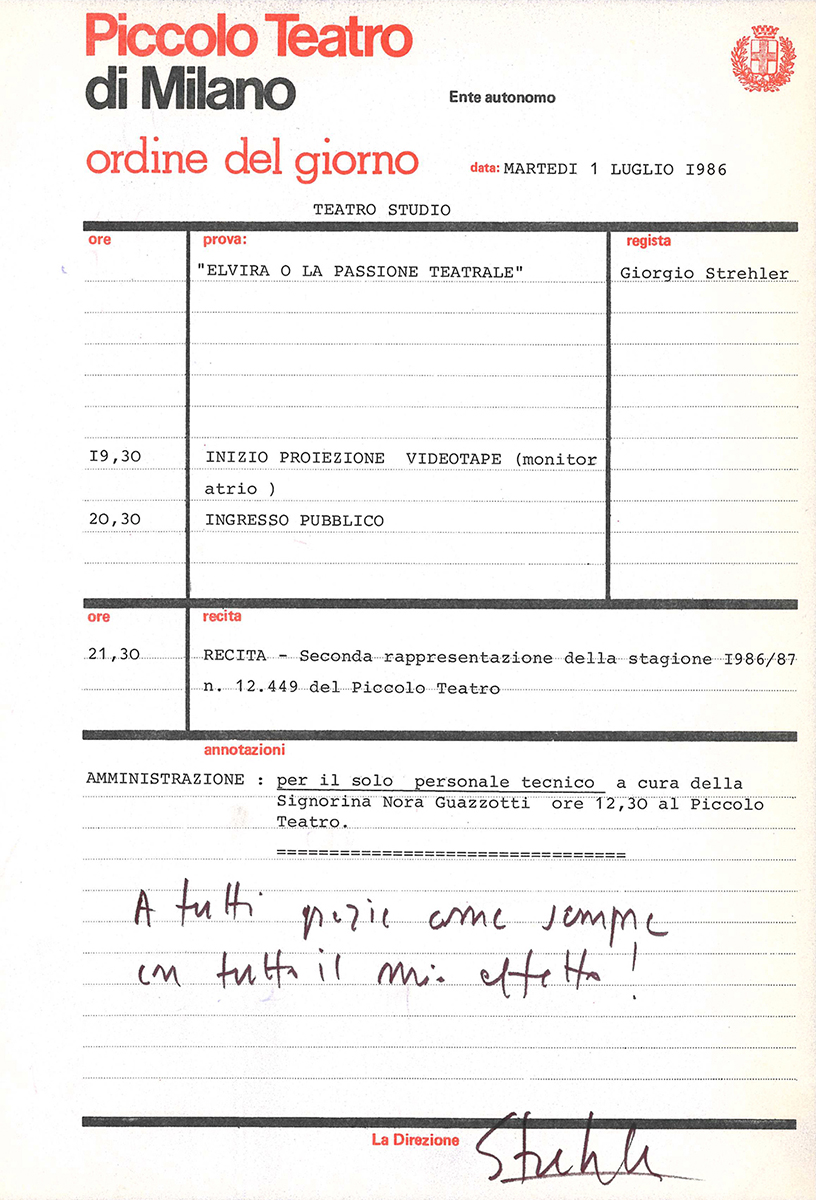 Piccolo Teatro
di Milano
Ente autonomo
ordine del giorno
data: MARTEDI 1 LUGLIO I986
TEATRO STUDIO
ore prova: regista
"ELVIRA O LA PASSIONE TEATRALE" Giorgio Strehler
I9,30 INIZIO PROIEZIONE VIDEOTAPE (monitor
atrio )
20,30 INGRESSO PUBBLICO
ore recita
21,30 RECITA - Seconda rappresentazione della stagione I986/87
n. 12.449 del Piccolo Teatro
annotazioni
AMMINISTRAZIONE : per il solo personale tecnico a cura della
Signorina Nora Guazzotti ore 12,30 al Piccolo
Teatro.
=================================
A tutti grazie come sempre
con tutto il mio affetto!
La Direzione Strehler